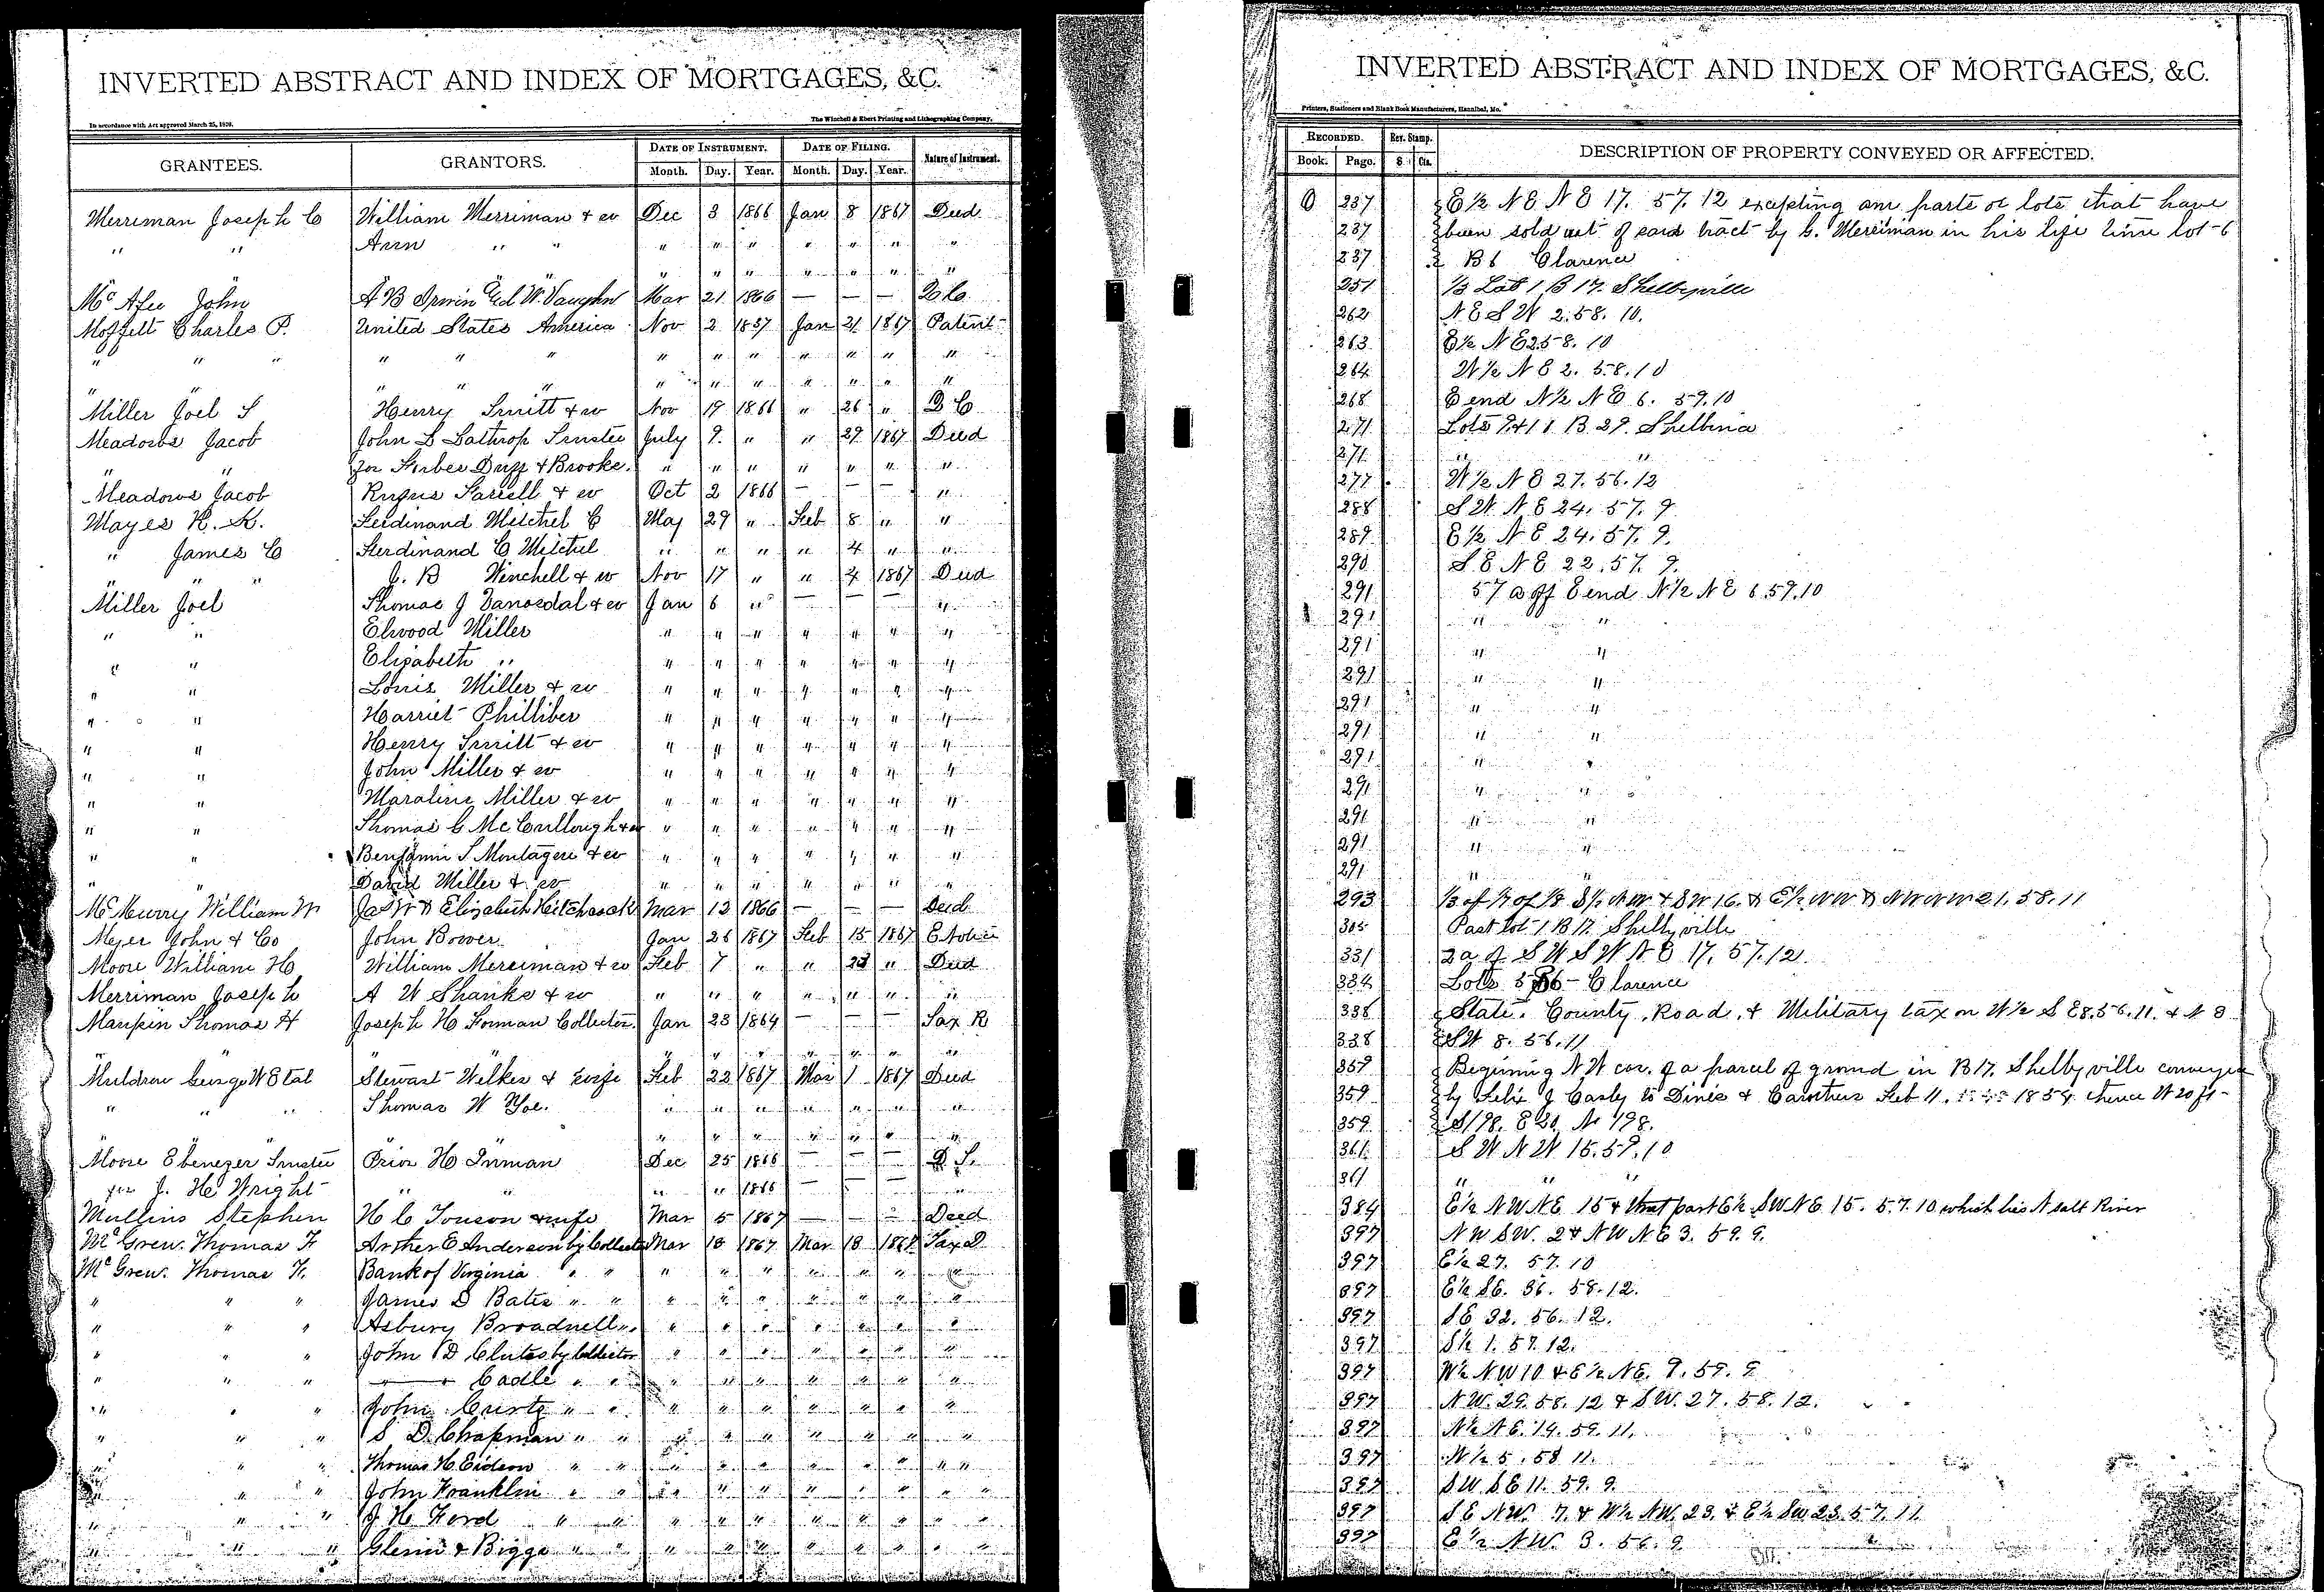 INVERTED ABSTRACT AND INDEX OF MORTGAGES, &C.
In accordance with Act approved March 25, The Winchell & Ebert Printing and Lithographing Company,
GRANTEES. GRANTORS. DATE OF INSTRUMENT. DATE OF FILING. Nature of Instrument.
Month. Day. Year. Month. Day. Year.
Merriman Joseph C William Merriman & w Dec 3 1866 Jan 8 1867 Deed
" " Ann " " " " " " " " "
" " " " " " "
Mc Afee John A B Irwin Ed W. Vaughn Mar 21 1866 — — —
Moffett Charles P. United States America Nov 2 1837 Jan 21 1867 Patent
" " " " " " " " " " " " "
" " " " " " " " " " "
Miller Joel S Henry Smitt & w Nov 19 1866 " 26 " D C
Meadows Jacob John L Lathrop Trustee July 9. " " 29 1867 Deed
for Forbes Duff & Brooke. " " " " " " "
Meadows Jacob Rufus Farrell & w Oct 2 1866 — — — "
Mayes H. K. Ferdinand Mitchel C May 29 " Feb 8 " "
" James C Ferdinand C Mitchel " " " " 4 " "
" " " J. B Winchell & w Nov 17 " " 4 1867 Deed
Miller Joel Thomas J Vanosdal & w Jan 6 " — — — "
" " Elwood Miller " " " " " " "
" " Elizabeth " " " " " " " "
" " Louis Miller & w " " " " " " "
" " Harriet Philliber " " " " " " "
" " Henry Smitt & w " " " " " " "
" " John Miller & w " " " " " " "
" " Maraline Miller & w " " " " " " "
" " Thomas C McCullough & w " " " " " " "
" " Benjamin S Montagere & w " " " " " " "
" " David Miller & w " " " " " " "
Mc Murry William W Jas W & Elizabeth Hitchcock Mar 12 1866 — — — Deed
Meyer John & Co John Bower Jan 26 1867 Feb 15 1867 E Notice
Moore William H William Merriman & w Feb 7 " " 23 " Deed
Merriman Joseph A W Shanks & w " " " " " " "
Maupin Thomas H Joseph H Forman Collector Jan 23 1864 — — — Tax R
" " " " " " "
Muldrow George W Etal Stewart Wilkes & wife Feb 22 1867 Mar 1 1867 Deed
" " " Thomas W Yoe. " " " " " " "
" " " " " " "
Moore Ebenezer Trustee Prior H Inman Dec 25 1866 — — — D T.
for J. H. Wright " " " " 1866 — — — "
Mullins Stephen H C Touson & wife Mar 5 1867 — — — Deed
Mc Grew. Thomas F Arther E Anderson by Collector Mar 18 1867 Mar 18 1867 Tax D
Mc Grew. Thomas F. Bank of Virginia " " " " " " " " "
" " " James D Bates " " " " " " " " "
" " " Asbury Broadnell " " " " " " " "
" " " John D Clutes by Collector " " " " " " "
" " " — Cadle " " " " " " " " "
" " " John Curts " " " " " " " " "
" " " S D. Chapman " " " " " " " " "
" " " Thomas H. Eidson " " " " " " " " " "
" " " John Franklin " " " " " " " " "
" " " J H. Ford " " " " " " " " "
" " " Glenn & Biggs " " " " " " " " "
INVERTED ABSTRACT AND INDEX OF MORTGAGES, &C.
Printers, Stationers and Blank Book Manufacturers, Hannibal, Mo.
RECORDED. Rev. Stamp. DESCRIPTION OF PROPERTY CONVEYED OR AFFECTED.
Book. Page. $ Cts.
O 237 E½ NE NE 17. 57. 12 excepting any parts of lots that have
237 been sold out of said tract by G. Merriman in his life time lot 6
237 B6 Clarence
251 ⅓ Lot 1 B 17. Shelbyville
262 N E S W 2. 58. 10.
263 E½ NE 2 58. 10
264 W½ N E 2. 58. 10
268 E end N½ N E 6. 59. 10
271 Lots 9 & 11 B 29. Shelbina
271 " "
277 W½ N E 27. 56. 12
288 S W. N E 24. 57. 9
289 E½ N E 24. 57. 9.
290 S. E N E 22. 57. 9.
291 57 a off E end N½ N E 6. 59. 10
291 " "
291 " "
291 " "
291 " "
291 " "
291 "
291 " "
291 " "
291 " "
291 " "
293 ⅓ of ⅐ of ⅛ S½ NW & SW 16. & E½ NW & NW NW 21. 58. 11
305 Part Lot 1 B 17. Shelbyville
331 2 a of S W S W N E 17. 57. 12
334 Lots 5 & 6 Clarence
338 State, County, Road, & Military tax on W½ S E 8. 56. 11. & N E
338 S W 8. 56. 11
359 Begining N W cor. of a parcel of ground in B 17. Shelbyville conveyed
359 by Felix J Carly to Dines & Carothers Feb 11. 1854 thence W 20 ft
359 S 198. E 20 N 198.
361 S W N W 15. 59. 10
361 " " "
384 E½ N W N E 15 & that part E½ SW NE 15. 57. 10 which lies N salt River
397 N W SW. 2 & N W N E 3. 59. 9.
397 E½ 27. 57. 10
397 E½ SE. 36. 58. 12.
397 S E 32. 56. 12.
397 S½ 1. 57. 12.
397 W½ N W 10 & E½ NE. 9. 59. 9
397 N W. 29. 58. 12 & S W. 27. 58. 12.
397 N½ N E. 14. 59. 11.
397 N½ 5. 58 11.
397 S W S E 11. 59. 9.
397 S E N W. 7. & W½ NW. 23. & E½ SW 23. 57. 11
397 E½ N W. 3. 56. 9